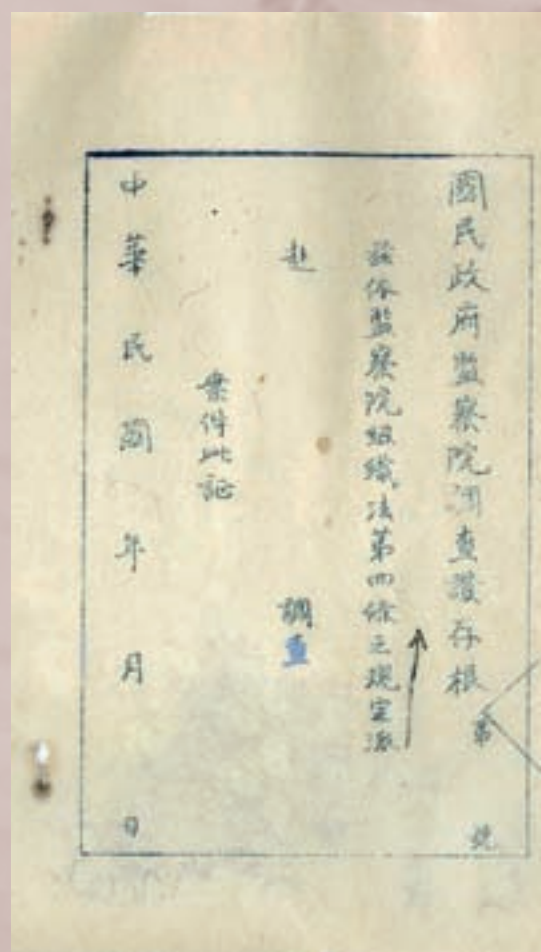 國民政府監察院調查證存根 第 號
茲依監察院組織法第四條之規定派
赴 調查
案件此証
中華民國 年 月 日